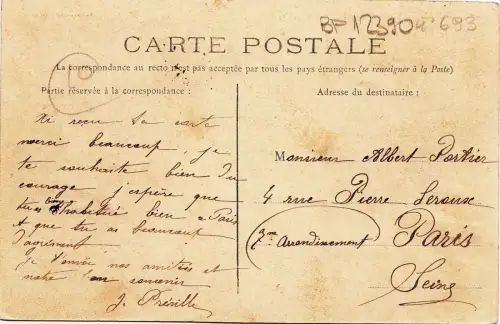 BP 12390 693
CARTE POSTALE
La correspondance au recto n'est pas acceptée par tous les pays étrangers (se renseigner à la Poste)
Partie réservée à la correspondance :
Adresse du destinataire :
Ai reçu ta carte
merci beaucoup, je
te souhaite bien du
courage j'espère que
tu habitué bien à Paris
et que tu as beaucoup
d'agrément
Je t'envoie nos amitiés et
notre bon souvenir
J. Préville
Monsieur Albert Portier
4 rue Pierre Leroux
7me Arrondissement
Paris
Seine